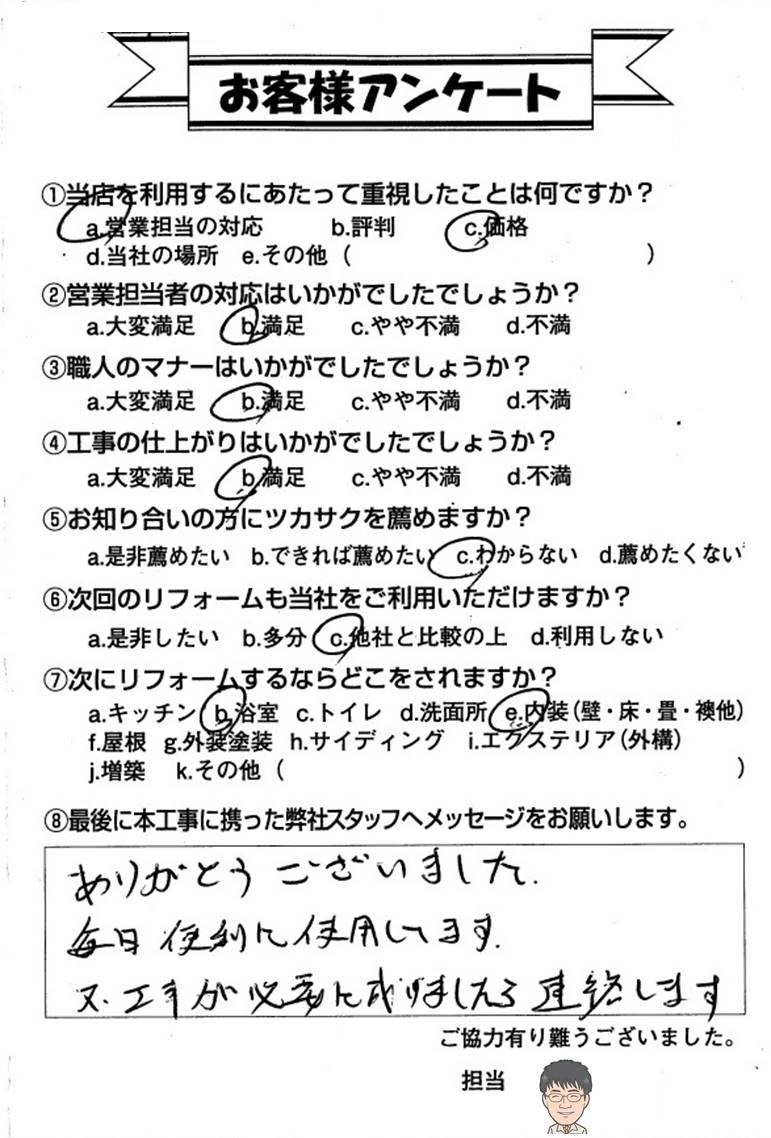 お客様アンケート
①当店を利用するにあたって重視したことは何ですか？
a.営業担当の対応　b.評判　c.価格
d.当社の場所　e.その他（　　　）
②営業担当者の対応はいかがでしたでしょうか？
a.大変満足　b.満足　c.やや不満　d.不満
③職人のマナーはいかがでしたでしょうか？
a.大変満足　b.満足　c.やや不満　d.不満
④工事の仕上がりはいかがでしたでしょうか？
a.大変満足　b.満足　c.やや不満　d.不満
⑤お知り合いの方にツカサクを薦めますか？
a.是非薦めたい　b.できれば薦めたい　c.わからない　d.薦めたくない
⑥次回のリフォームも当社をご利用いただけますか？
a.是非したい　b.多分　c.他社と比較の上　d.利用しない
⑦次にリフォームするならどこをされますか？
a.キッチン　b.浴室　c.トイレ　d.洗面所　e.内装（壁・床・畳・襖他）
f.屋根　g.外装塗装　h.サイディング　i.エクステリア（外構）
j.増築　k.その他（　　　）
⑧最後に本工事に携った弊社スタッフへメッセージをお願いします。
ありがとうございました.
毎日便利に使用してます.
又.工事が必要に成りましたら連絡します
ご協力有り難うございました。
担当